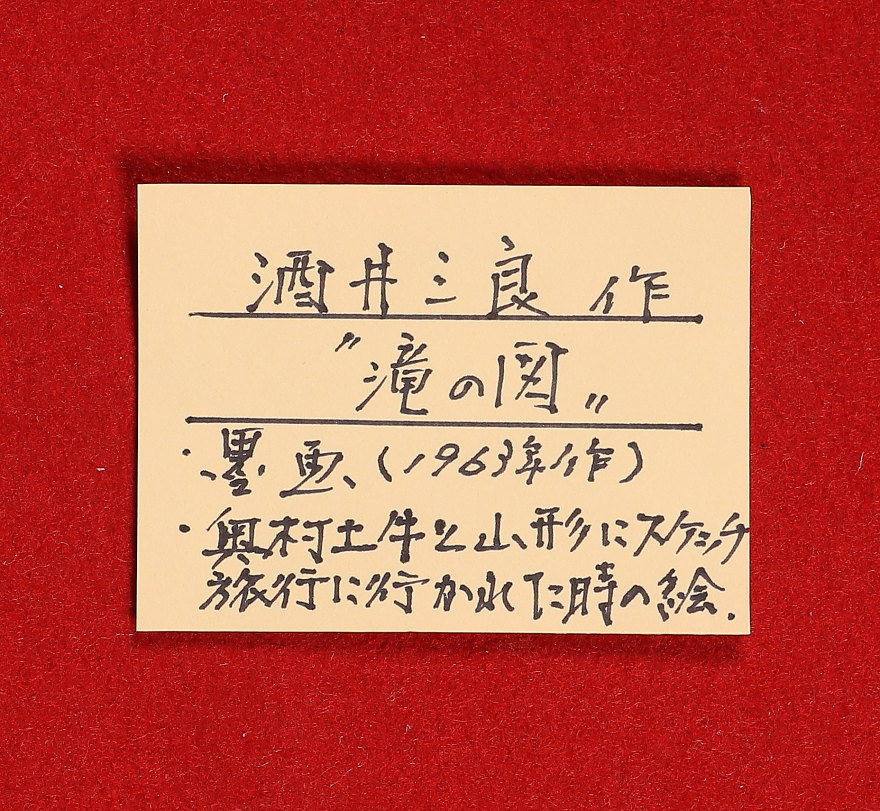 酒井三良 作
〃滝の図〃
・墨画、(1963年作)
・奥村土牛と山形にスケッチ
旅行に行かれた時の絵.